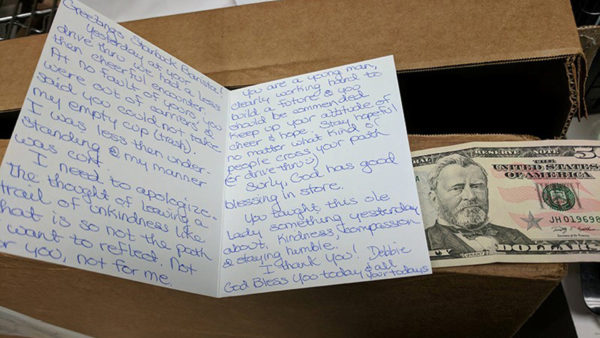 Greetings Starbuck Barista!
Yesterday at your
drive thru we had a less
than cheerful encounter.
At no fault of yours, you
were out of carriers &
said you could not take
my empty cup (trash).
I was less then under-
standing & my manner
was curt.
I need to apologize.
the thought of leaving a
trail of unkindness like
that is so not the path
I want to reflect. Not
for you, not for me.
You are a young man,
clearly working hard to
build a future & you
should be commended.
Keep up your attitude of
cheer & hope. Stay hopeful
no matter what kind of
people cross your path
(or drive thru :)
Surly, God has good
blessing in store.
You taught this ole
Lady something yesterday
about, Kindness, Compassion
& staying humble.
I thank You! Debbie
God Bless You today & all
your todays
RESERVE NOTE
THE
UNITED STATES
JH019638
DOLLARS